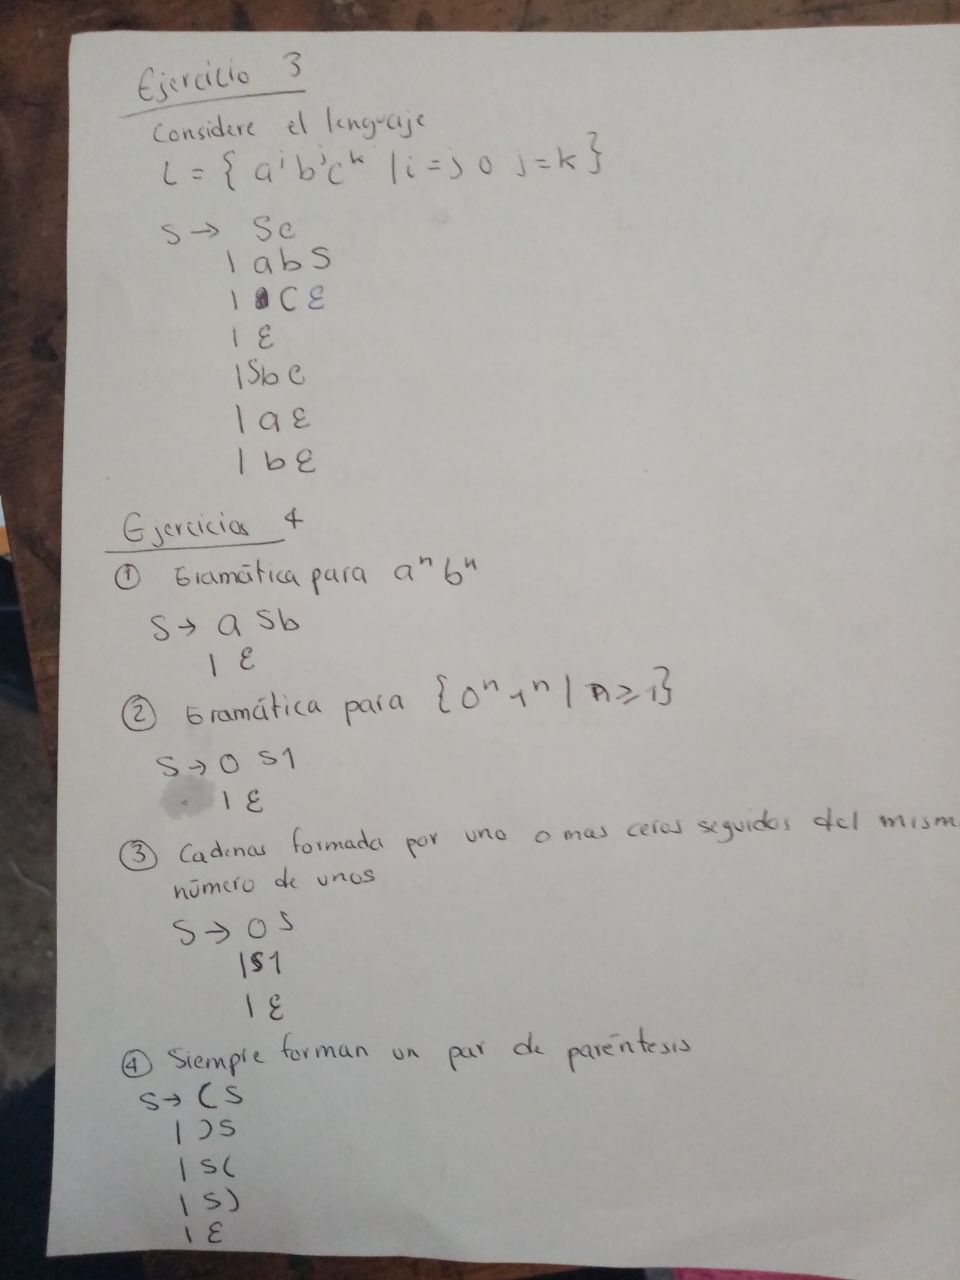 Ejercicio 3
Considere el lenguaje
L = { aⁱbʲcᵏ | i = j o j = k }
S → Sc
| abS
| C ε
| ε
| Sbc
| a ε
| b ε
Ejercicios 4
① Gramática para aⁿbⁿ
S → a Sb
| ε
② Gramática para {0ⁿ1ⁿ | n ≥ 1}
S → 0 S1
| ε
③ Cadenas formada por uno o mas ceros seguidos del mism
número de unos
S → 0S
| S1
| ε
④ Siempre forman un par de paréntesis
S → (S
| )S
| S(
| S)
| ε